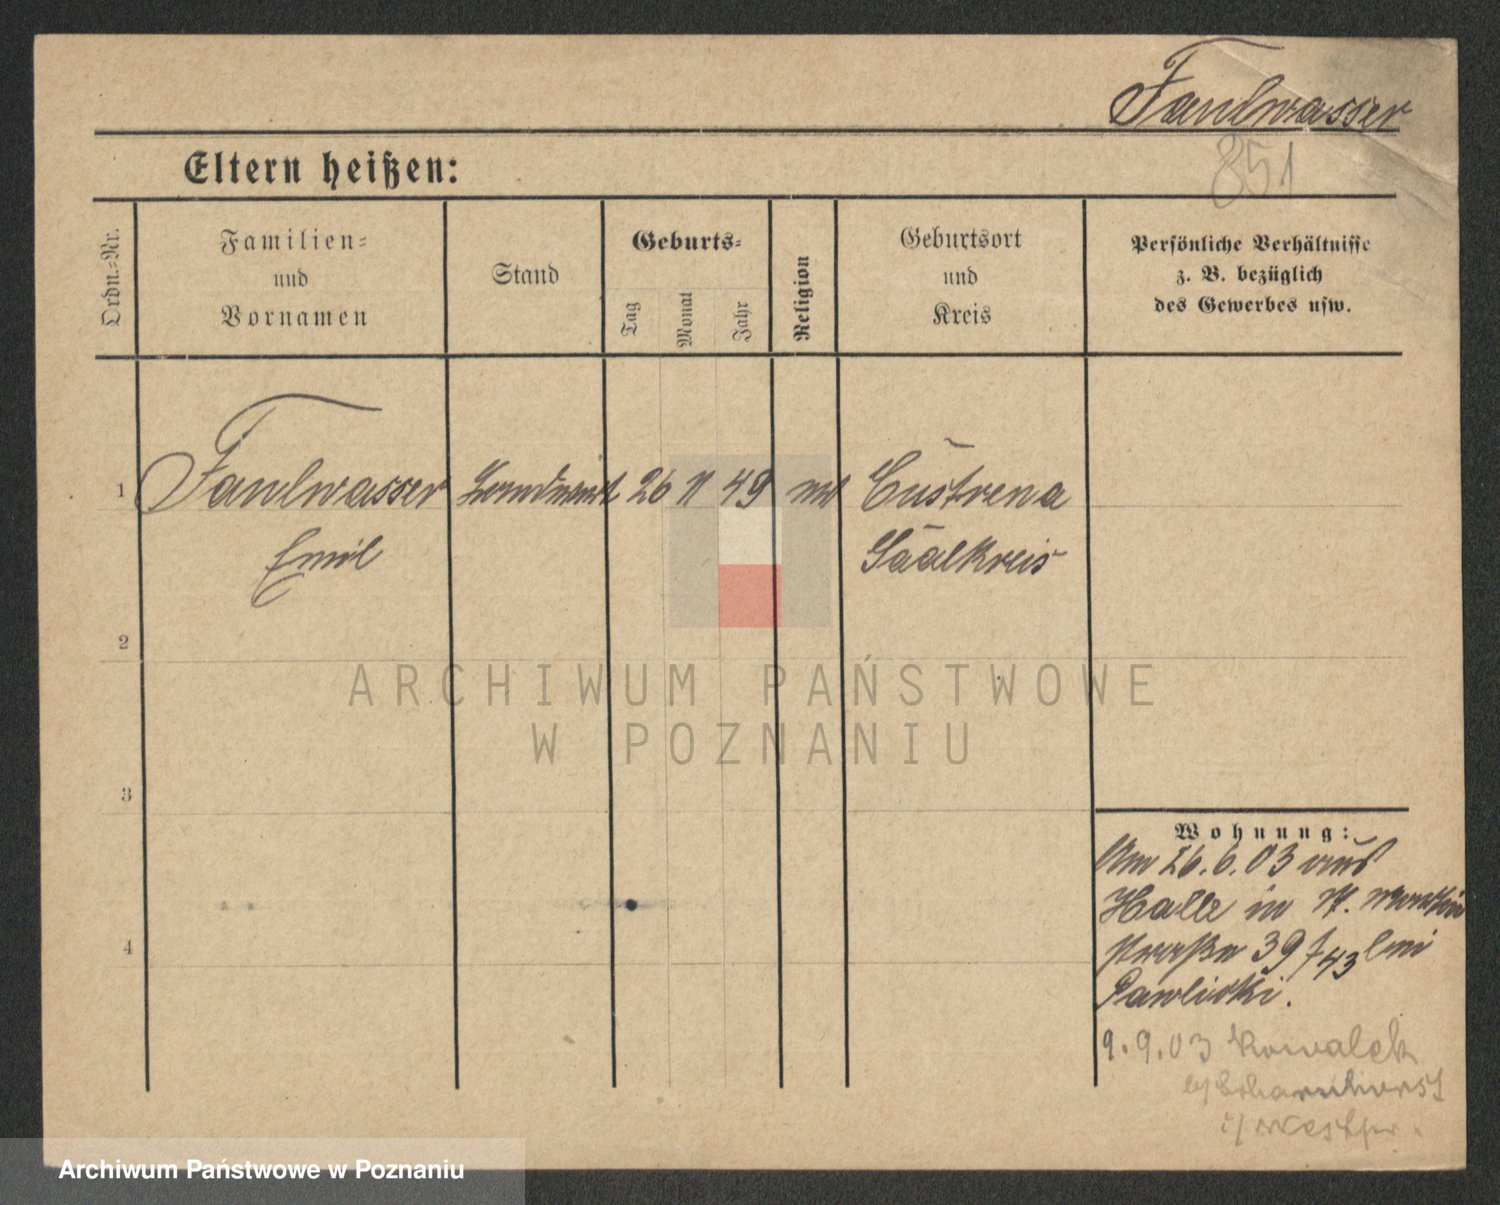 Faulwasser
851
Eltern heißen:
Ordn.=Nr.
Familien=
und
Vornamen
Stand
Geburts=
Tag
Monat
Jahr
Religion
Geburtsort
und
Kreis
Persönliche Verhältnisse
z. B. bezüglich
des Gewerbes usw.
1 Faulwasser Landwirt 26 11 49 Custrena
Emil Saalkreis
2
3
4
ARCHIWUM PAŃSTWOWE
W POZNANIU
Wohnung:
Am 26.6.03 aus
Halle in
straße 39/43 bei
Pawlicki.
9.9.03 Kowalek
i/ Westpr.
Archiwum Państwowe w Poznaniu